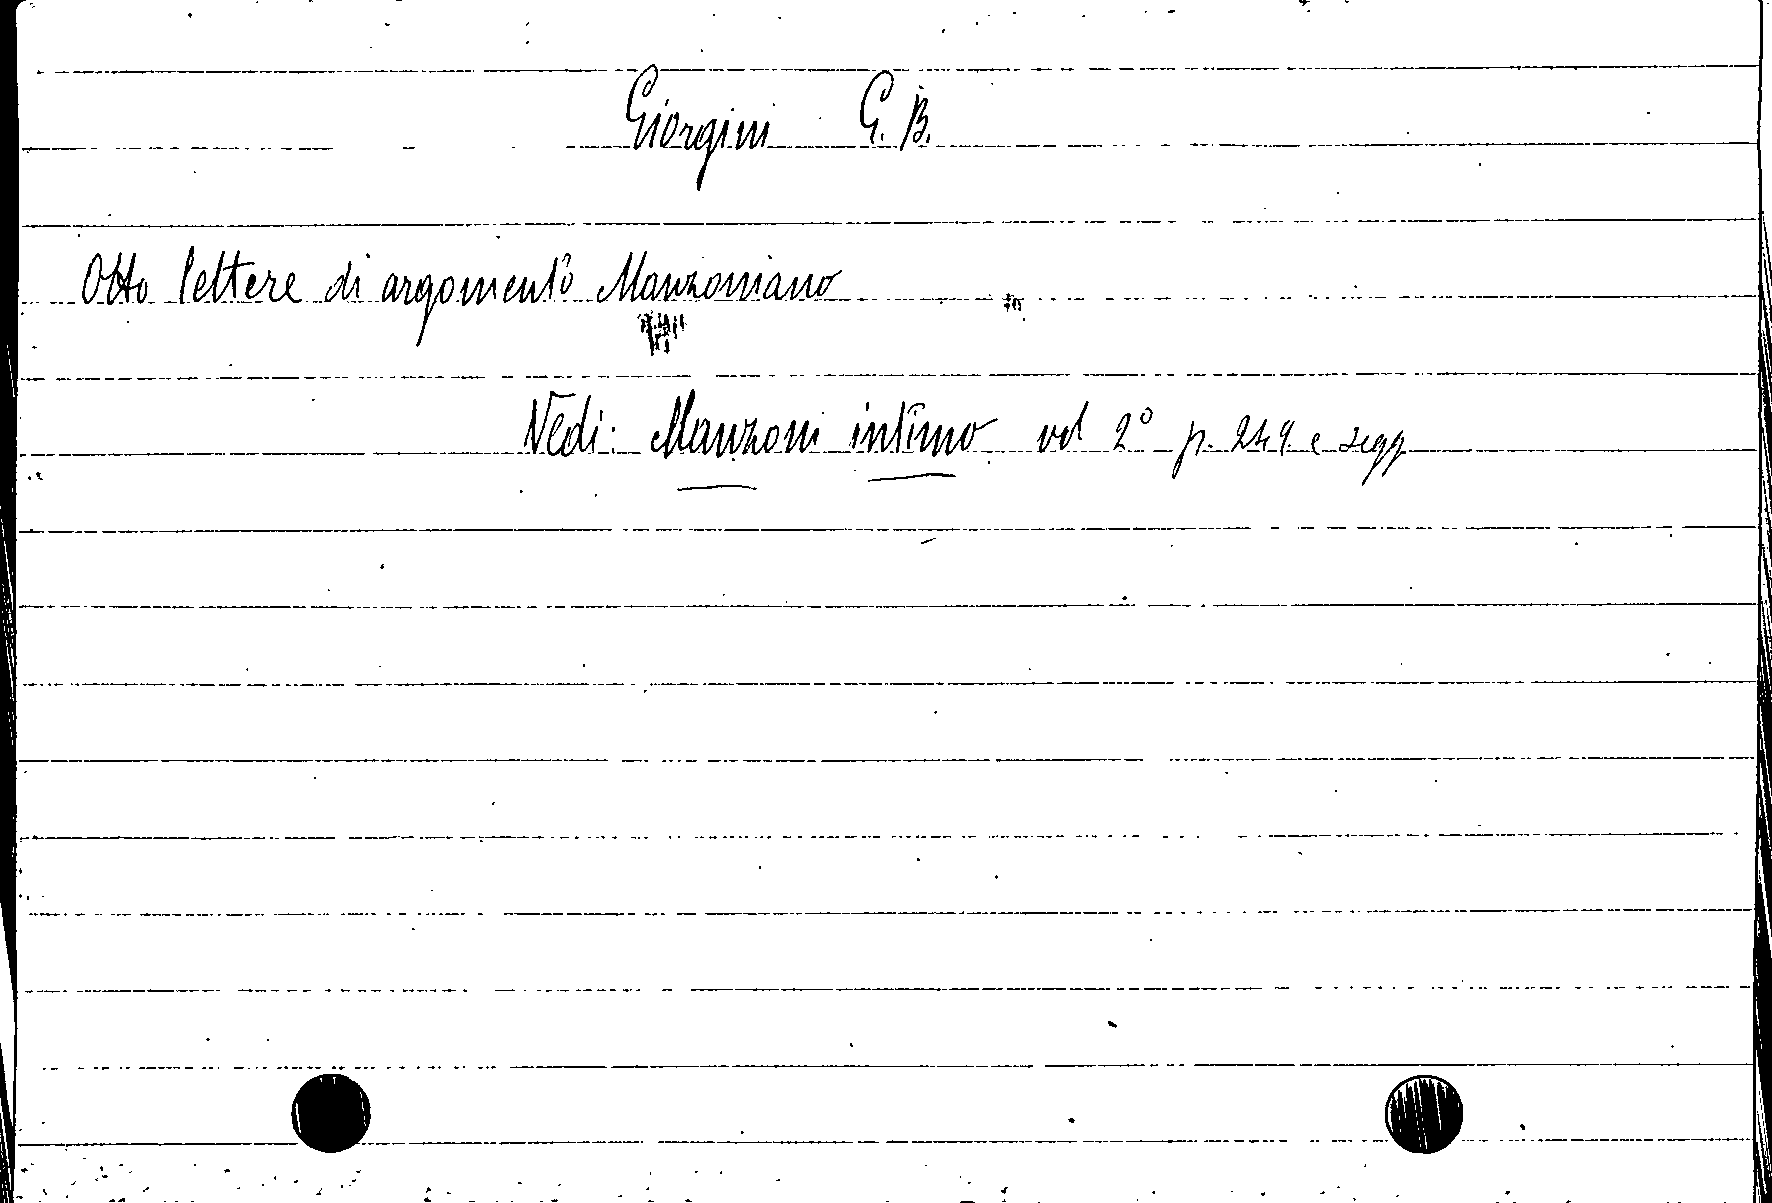 Giorgini G. B.
Otto lettere di argomento Manzoniano
Vedi: Manzoni intimo vol 2° p. 249 e segg